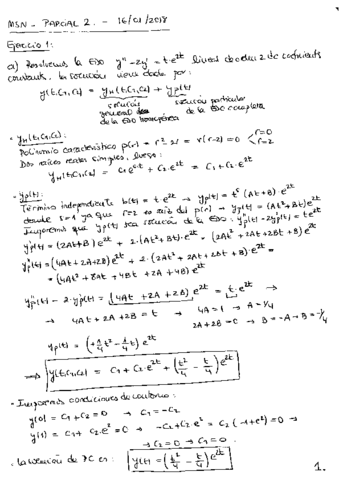 MSN - PARCIAL 2. - 16/01/2018
Ejercicio 1:
a) Resolvemos la EDO y'' - 2y' = t·e^2t lineal de orden 2 de coeficientes
constantes. La solución viene dada por:
y(t,C1,C2) = yH(t,C1,C2) + yp(t)
solución general de la EDO homogénea
solución particular de la EDO completa
· yH(t,C1,C2):
Polinomio característico p(r) = r² - 2r = r(r-2) = 0 r=0 r=2
Dos raíces reales simples, luego:
yH(t,C1,C2) = C1·e^0·t + C2·e^2t = C1 + C2·e^2t
· yp(t):
Término independiente b(t) = t·e^2t → yp(t) = t^s (At+B)·e^2t
donde s=1 ya que r=2 es raíz del p(r) → yp(t) = (At²+Bt)e^2t
Imponemos que yp(t) sea solución de la EDO: yp''(t) - 2yp'(t) = t·e^2t
yp'(t) = (2At+B)e^2t + 2·(At²+Bt)·e^2t = (2At² + 2At + 2Bt + B)e^2t
yp''(t) = (4At + 2A + 2B)e^2t + 2·(2At² + 2At + 2Bt + B)e^2t =
= (4At² + 8At + 4Bt + 2A + 4B)e^2t
yp''(t) - 2·yp'(t) = (4At + 2A + 2B)e^2t = t·e^2t →
→ 4At + 2A + 2B = t → 4A = 1 → A = 1/4
2A + 2B = 0 → B = -A → B = -1/4
yp(t) = (1/4 t² - 1/4 t) e^2t
⟹ y(t,C1,C2) = C1 + C2·e^2t + (t²/4 - t/4) e^2t
· Imponemos condiciones de contorno:
y(0) = C1 + C2 = 0 → C1 = -C2
y(1) = C1 + C2·e² = 0 → -C2 + C2·e² = 0 → C2(-1+e²) = 0 →
→ C2 = 0 → C1 = 0.
· La solución de PC es: y(t) = (t²/4 - t/4) e^2t
1.